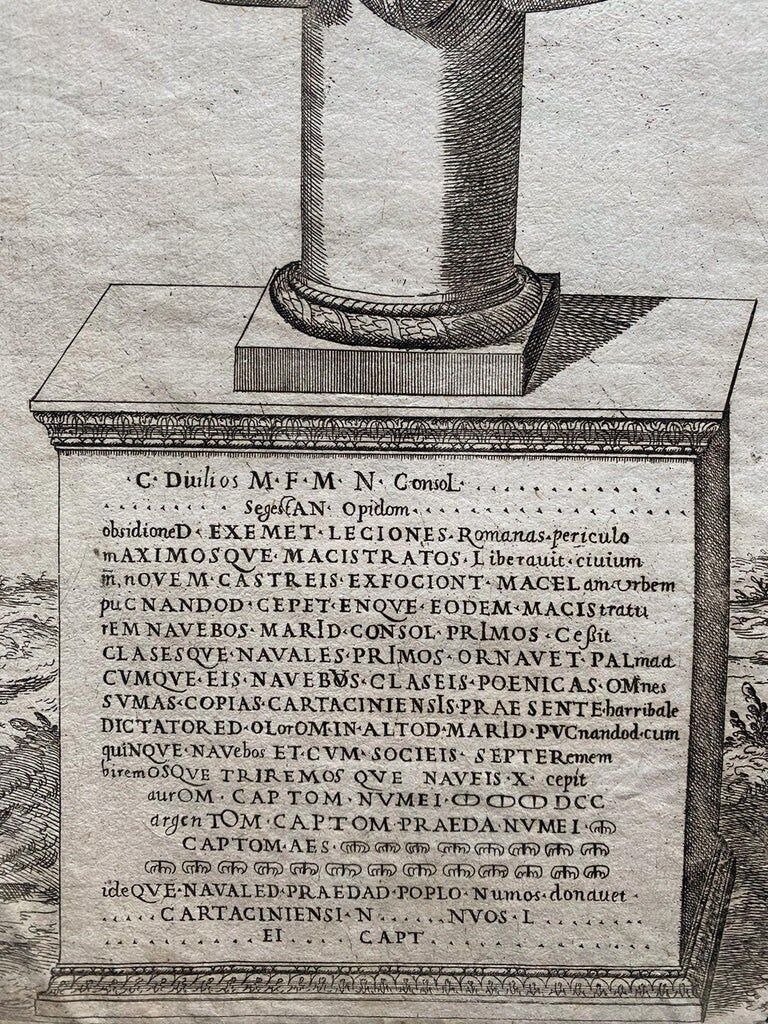 ·C· Duilios M·F·M· N· Consol. . . . . . . . . . . .
. . . . . . . . . SegestAN· Opidom . . . . . . . . . . . . . . .
obsidioneD· EXEMET· LECIONES· Romanas· periculo
mAXIMOSQVE· MACISTRATOS· Liberauit· ciuium
m̅, nOVEM· CASTREIS· EXFOCIONT· MACELam urbem
puCNANDOD· CEPET· ENQVE· EODEM· MACIStratu
rEM NAVEBOS· MARID· CONSOL· PRIMOS· Ceßit
CLASESQVE· NAVALES· PRIMOS· ORNAVET· PALmad
CVMQVE· EIS· NAVEBVS· CLASEIS· POENICAS· OMnes
SVMAS· COPIAS· CARTACINIENSIS· PRAESENTE· harribale
DICTATORED· OLorOM· IN· ALTOD· MARID· PVCnandod· cum
quiNQVE· NAVebos ET· CVM· SOCIEIS· SEPTERemem
biremOSQVE TRIREMOS QVE NAVEIS· X· cepit
aurOM· CAPTOM· NVMEI· ↀↀↀ DCC
argenTOM· CAPTOM· PRAEDA· NVMEI· ↈ
CAPTOM· AES· ↈ ↈ ↈ ↈ ↈ ↈ ↈ ↈ
ↈ ↈ ↈ ↈ ↈ ↈ ↈ ↈ ↈ ↈ ↈ ↈ ↈ
ideQVE· NAVALED· PRAEDAD· POPLO· Numos· donauet·
. . . . . CARTACINIENSI· N . . . . . . NVOS· L . . . . . . . .
. . . . . . . . . . . . EI . . . . CAPT . . . . . . . . . . . . . .